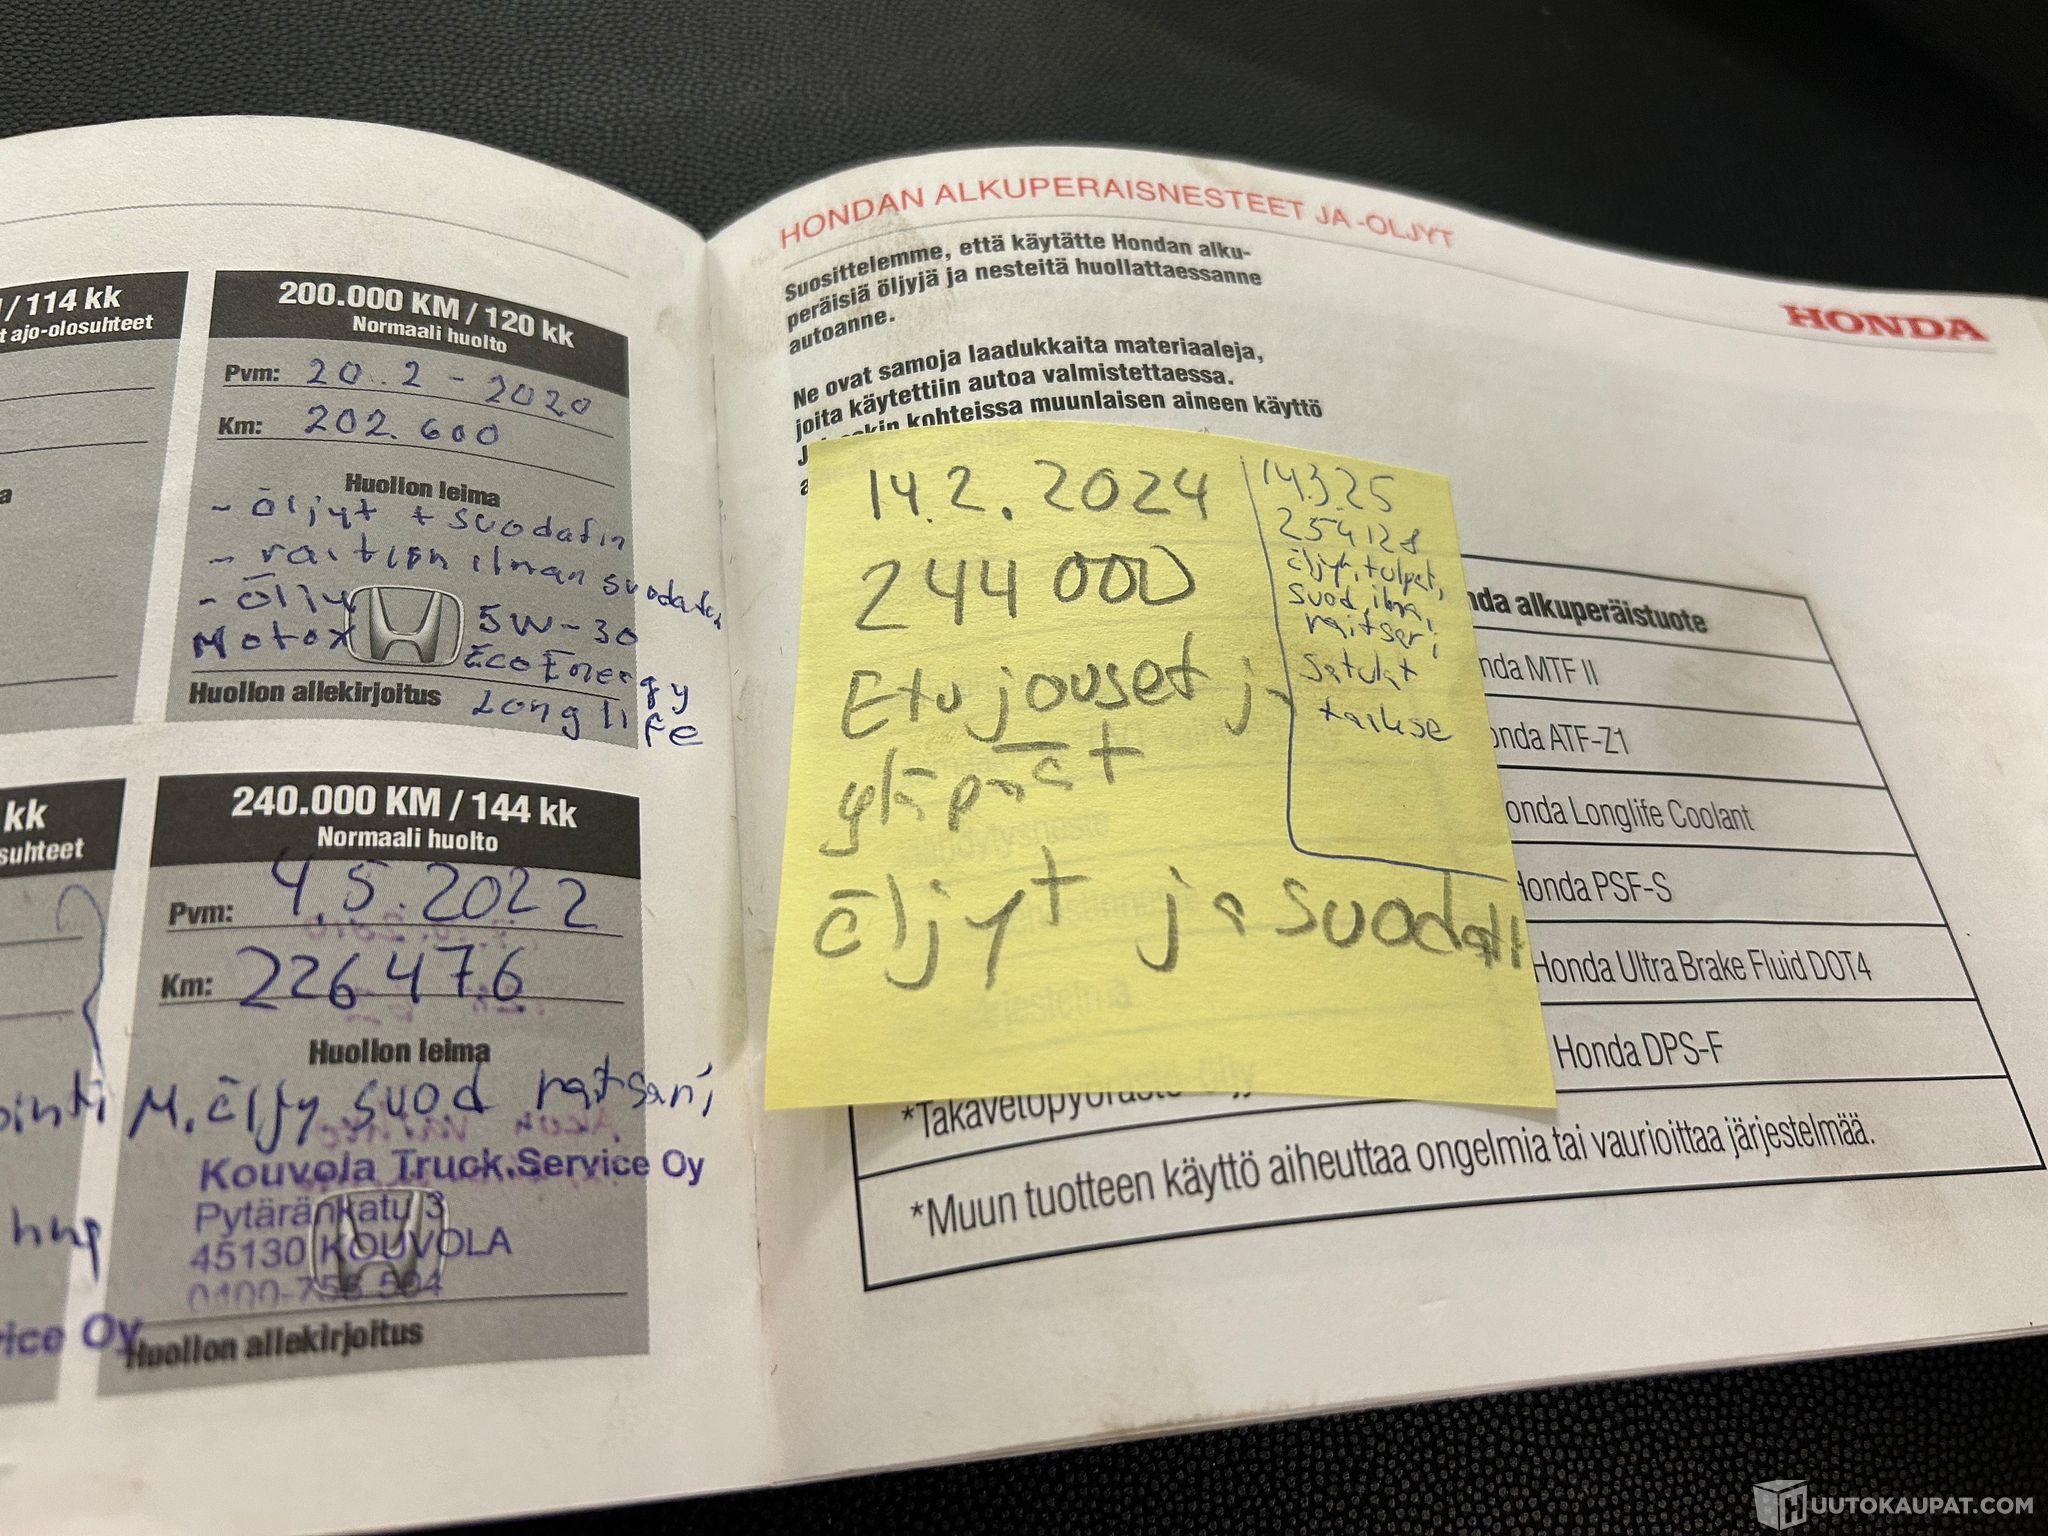 / 114 kk
t ajo-olosuhteet
200.000 KM / 120 kk
Normaali huolto
Pvm: 20.2-2020
Km: 202.600
Huollon leima
- öljyt + suodatin
- raitisn ilman suodatin
- öljy 5W-30
Motox EcoEnergy
Huollon allekirjoitus Longlife
kk
suhteet
240.000 KM / 144 kk
Normaali huolto
Pvm: 4.5.2022
Km: 226476
Huollon leima
M.öljy suod raitsari
Kouvola Truck Service Oy
Pytäränkatu 3
45130 KOUVOLA
Huollon allekirjoitus
vice Oy
HONDAN ALKUPERAISNESTEET JA -OLJYT
HONDA
Suosittelemme, että käytätte Hondan alku-
peräisiä öljyjä ja nesteitä huollattaessanne
autoanne.
Ne ovat samoja laadukkaita materiaaleja,
joita käytettiin autoa valmistettaessa.
kohteissa muunlaisen aineen käyttö
14.2.2024
244 000
Etu jouset ja
yläpäät
öljyt ja suodatt
14.3.25
254128
öljyt, tulpat,
suod, ilma,
raitsari
satulat
nda alkuperäistuote
nda MTF II
onda ATF-Z1
onda Longlife Coolant
Honda PSF-S
Honda Ultra Brake Fluid DOT4
Honda DPS-F
*Takavetopyörästö öljy
*Muun tuotteen käyttö aiheuttaa ongelmia tai vaurioittaa järjestelmää.
HUUTOKAUPAT.COM